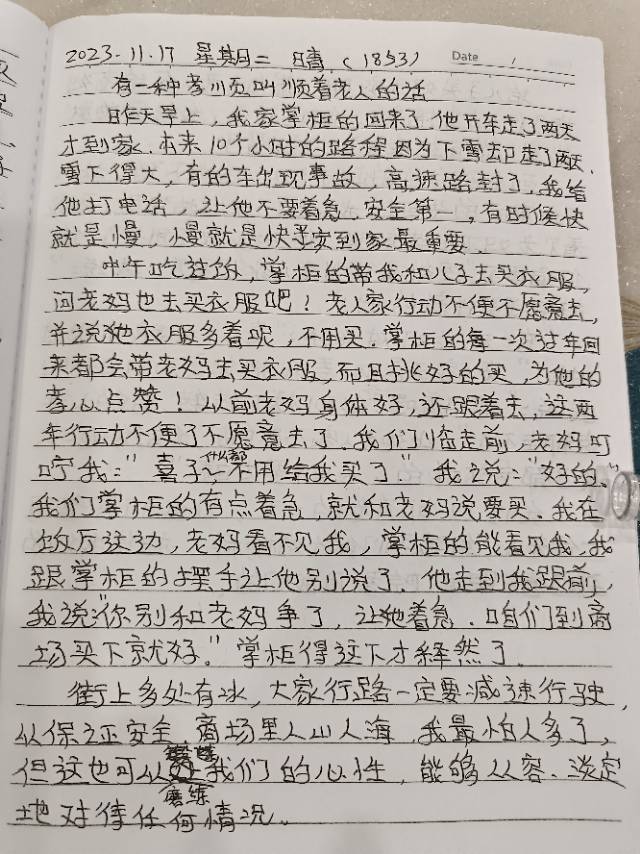 2023.11.17 星期二 晴 (1853) Date /
有一种孝顺叫顺着老人的话
昨天早上,我家掌柜的回来了.他开车走了两天
才到家.本来10个小时的路程因为下雪却走了两天.
雪下得大,有的车出现事故,高速路封了,我给
他打电话,让他不要着急,安全第一,有时候快
就是慢,慢就是快平安到家最重要.
中午吃过饭,掌柜的带我和儿子去买衣服,
问老妈也去买衣服吧!老人家行动不便不愿意去,
并说她衣服多着呢,不用买.掌柜的每一次过年回
来都会带老妈去买衣服,而且挑好的买,为他的
孝心点赞!以前老妈身体好,还跟着去,这两
年行动不便了不愿意去了.我们临走前,老妈叮
咛我:"喜子什么都不用给我买了."我说:"好的."
我们掌柜的有点着急,就和老妈说要买.我在
饭厅这边,老妈看不见我,掌柜的能看见我,我
跟掌柜的摆手让他别说了.他走到我跟前,
我说"你别和老妈争了,让她着急.咱们到商
场买下就好."掌柜得这下才释然了.
街上多处有冰,大家行路一定要减速行驶,
以保证安全.商场里人山人海.我最怕人多了,
但这也可以磨练我们的心性,能够从容、淡定
地对待任何情况。